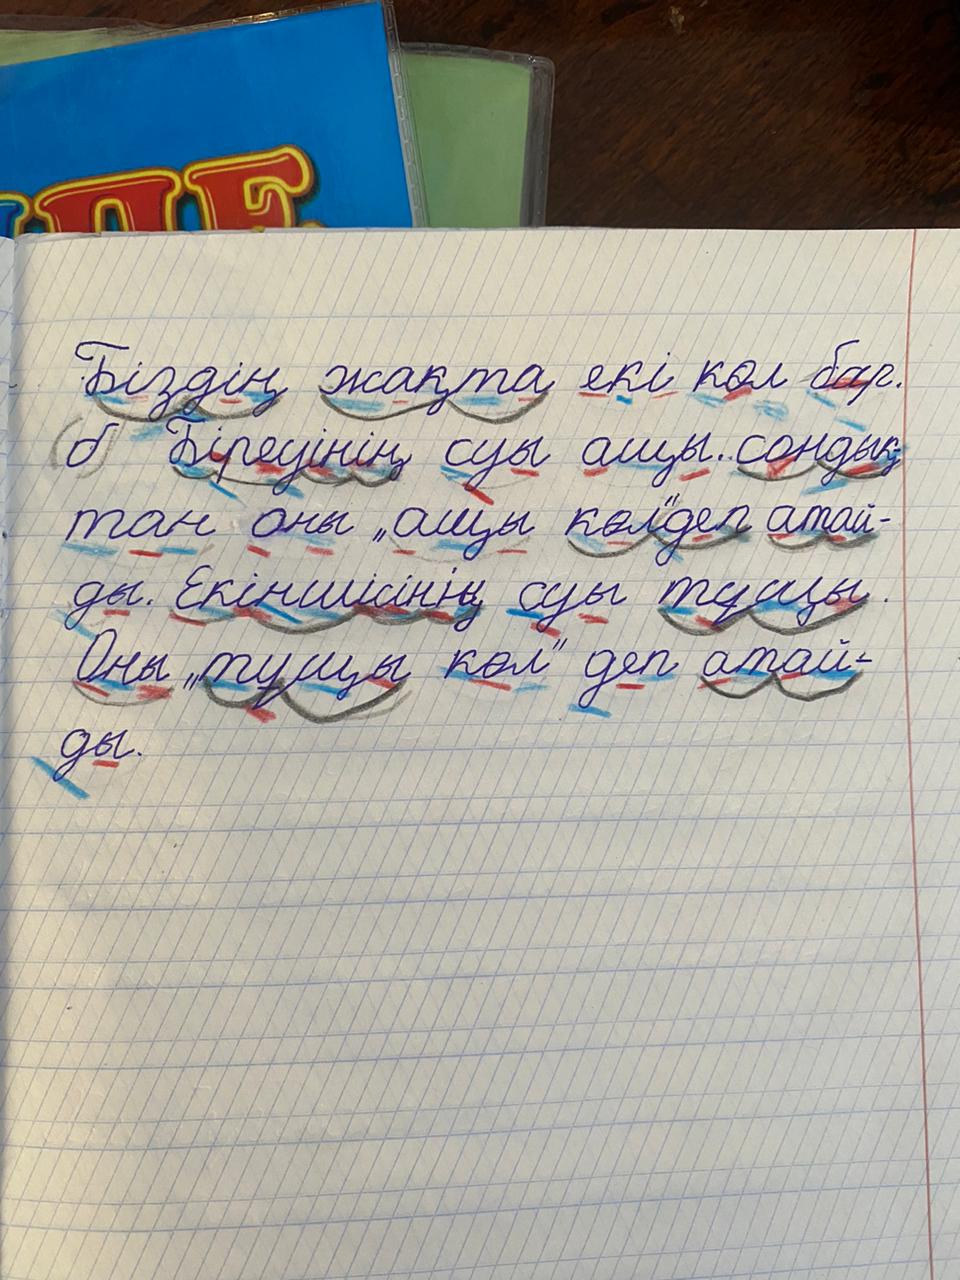 Біздің жақта екі көл бар.
б) Біреуінің суы ащы. сондық
тан оны „ащы көл" деп атай-
ды. Екіншісінің суы тущы.
Оны „тущы көл" деп атай-
ды.